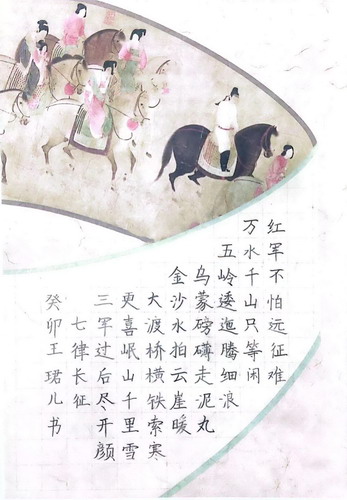 红军不怕远征难
万水千山只等闲
五岭逶迤腾细浪
乌蒙磅礴走泥丸
金沙水拍云崖暖
大渡桥横铁索寒
更喜岷山千里雪
三军过后尽开颜
七律长征
癸卯王珺儿书